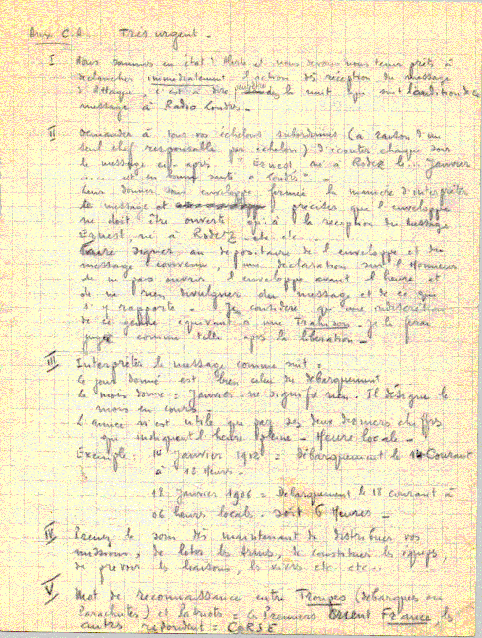 Aux C.A. Très urgent -
I Nous sommes en état d'Alerte et nous devons nous tenir prêts à
déclancher immédiatement l'action dès réception du message
d'Attaque, c'est à dire la nuit qui suit l'audition de ce
message à Radio Londres -
II Demander à tous vos échelons subordonnés (à raison d'un
seul chef responsable par échelon) d'écouter chaque soir
le message ci après "Ernest né à Rodez le... Janvier
..... est en bonne santé à Londres" -
Leur donner sous enveloppe fermée la manière d'interpréter
le message et préciser que l'enveloppe
ne doit être ouverte qu'à la réception du message
Ernest né à Rodez - etc etc...
Faire signer au dépositaire de l'enveloppe et du
message convenu, une déclaration sur l'Honneur
de ne pas ouvrir l'enveloppe avant l'heure et
de ne rien divulguer du message et de ce qui
s'y rapporte - Je considère qu'une indiscrétion
de ce genre équivaut à une Trahison - je le ferai
juger comme telle après la libération -
III Interpréter le message comme suit :
le jour donné est bien celui du débarquement
le mois donné = Janvier - ne signifie rien. Il désigne le
mois en cours -
L'année n'est utile que par ses deux derniers chiffres
qui indiquent l'heure - Heure locale -
Exemple : Janvier 1912 = Débarquement le 14 Courant
à 12 Heures -
18 Janvier 1906 = Débarquement le 18 courant à
06 heures locales - soit 6 Heures -
IV Prenez le soin dès maintenant de distribuer vos
missions, de constituer les équipes,
de prévoir les liaisons, les vivres etc etc...
V Mot de reconnaissance entre Troupes (débarquées ou
Parachutées) et Patriotes = les Premiers crient France, les
autres répondent = CORSE